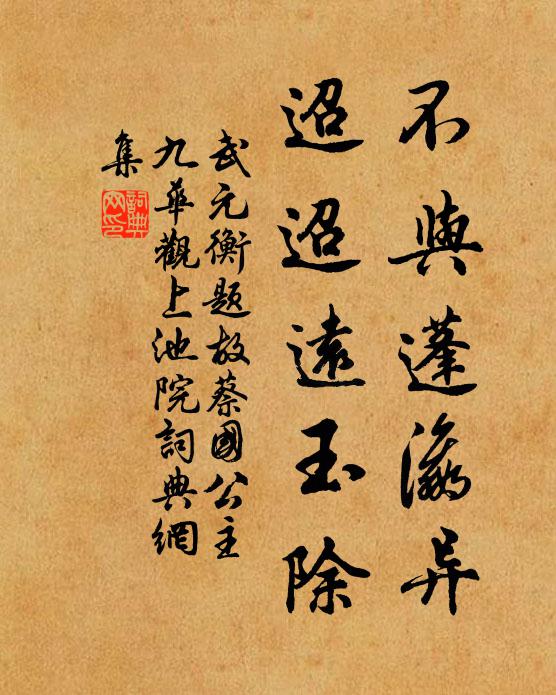 不與蓬瀛异
迢迢遠玉除
武元衡題故蔡國公主
九華觀上池院詞典網
集
詞典网印